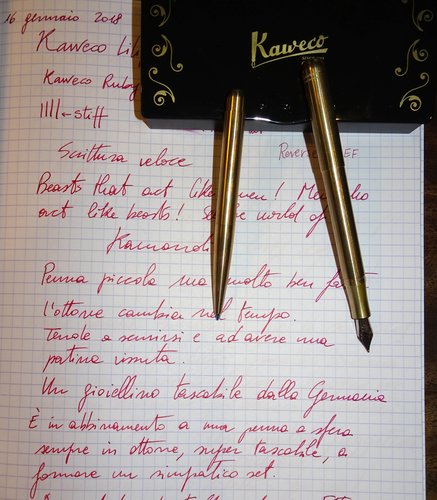 16 gennaio 2018
Kaweco
Kaweco Lil
Kaweco Ruby
||||←stiff
Scrittura veloce
Reverse EF
Beasts that act like men! Men who
act like beasts! world of
Kamandi
Penna piccola ma molto ben fatta.
l'ottone cambia nel tempo.
Tende a scurirsi e ad avere una
patina vissuta.
Un gioiellino tascabile dalla Germania
È in abbinamento a una penna a sfera
sempre in ottone, super tascabile, a
formare un simpatico set.